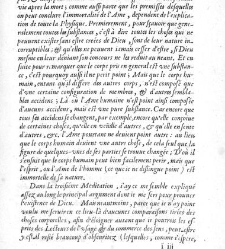 vie apres la mort ; comme aussi que les premisses desquelles
on peut conclure l'immortalité de l'Ame, dependent de l'explica-
tion de toute la Physique. Premierement, pour sçavoir que gene-
ralement toutes les substances, c'est à dire toutes les choses qui ne
peuvent exister sans estre creées de Dieu, sont de leur nature in-
corruptibles ; & qu'elles ne peuvent jamais cesser d'estre, si Dieu
mesme en leur déniant son concours ne les reduit au neant. Et en
suite pour remarquer que le corps pris en general est une substan-
ce, c'est pourquoy aussi il ne perit point ; Mais que le corps hu-
main, entant qu'il differe des autres corps, n'est composé que
d'une certaine configuration de membres, & d'autres sembla-
bles accidens ; Là où l'Ame humaine n'est point ainsi composée
d'aucuns accidens, mais est une pure substance. Car encore que
tous ses accidens se changent, par exemple, encore qu'elle conçoive
de certaines choses, qu'elle en veuille d'autres, & qu'elle en sente
d'autres, &c. l'Ame pourtant ne devient point autre : au lieu
que le corps humain devient une autre chose, de cela seul que la
figure de quelques-unes de ses parties se trouve changée : D'où il
s'ensuit que le corps humain peut bien facilement perir, mais que
l'esprit, ou l'Ame de l'homme (ce que je ne distingue point) est
immortelle de sa nature.
Dans la troisiéme Meditation, j'ay ce me semble expliqué
assez au long le principal argument dont je me sers pour prouver
l'existence de Dieu. Mais neantmoins, parce que je n'ay point
voulu me servir en ce lieu là d'aucunes comparaisons tirées des
choses corporelles, afin d'éloigner autant que je pourrois les es-
prits des Lecteurs de l'usage & du commerce des sens, peut-estre